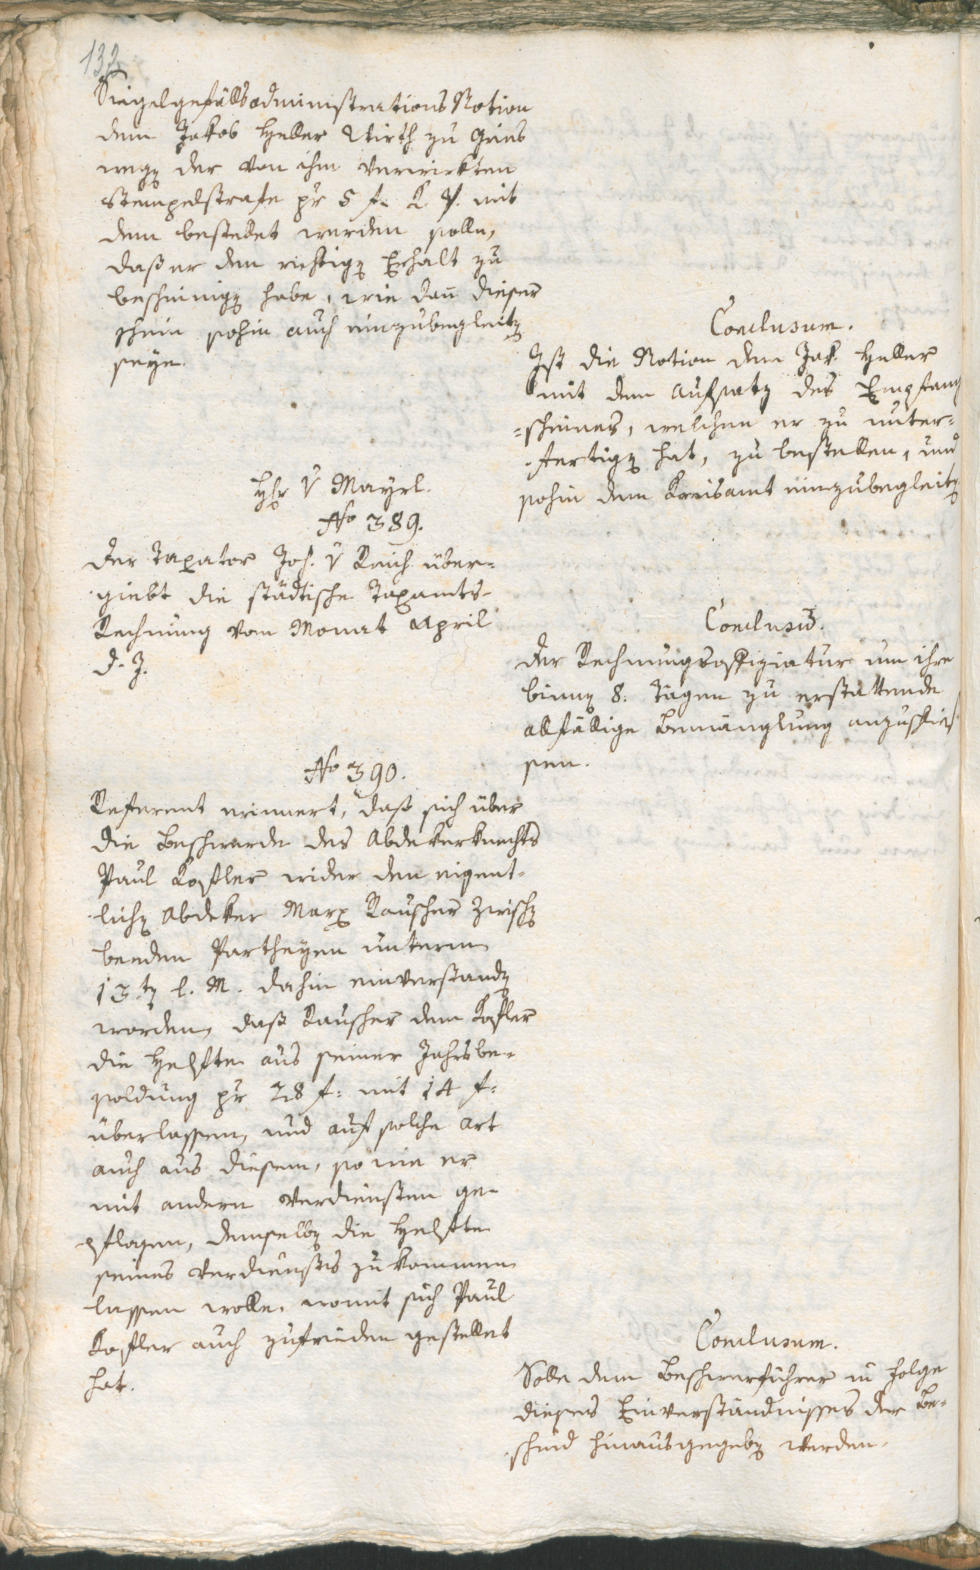 132
Siegelgefällsadministrations Notion
dem Jakob Heller Wirth zu Gries
wegen der von ihm verwirkten
Stempelstrafe pr 5 f. K. V. mit
dem bestellet werden solle,
daß er den richtigen Erhalt zu
bescheinigen habe, wie dann dieser
Schein sohin auch einzubegleiten
seye.
Conclusum.
Ist die Notion dem Jak. Heller
mit dem Aufsatz des Empfang
-scheines, welchen er zu unter-
fertigen hat, zu bestellen, und
sohin dem Kreisamt einzubegleiten
H v Mayrl.
No 389.
Der Taxator Joh. v Reich über-
giebt die städtische Taxamts-
Rechnung vom Monat April
d. J.
Conclusum.
Der Rechnungsoffiziatur um ihre
binnen 8. Tägen zu erstattende
allfällige Bemänglung anzuschlies
sen.
No 390.
Referent erinnert, daß sich über
die Beschwerde des Abdekerknechts
Paul Kofler wider den eigent-
lichen Abdeker Marx Rauscher zwischen
beeden Partheyen unterm
13ten l. M. dahin einverstanden
worden, daß Rauscher dem Kofler
die Helfte aus seiner Jahrsbe-
soldung pr 28 f: mit 14 f:
überlassen, und auf solche Art
auch aus diesem, so wie er
mit andern Verdiensten ge-
pflogen, demselben die Helfte
seines Verdienstes zukommen
lassen wolle. womit sich Paul
Kofler auch zufrieden gestellet
hat.
Conclusum.
Solle dem Beschwerführer in Folge
dieses Einverständnisses der Be-
scheid hinausgegeben werden.